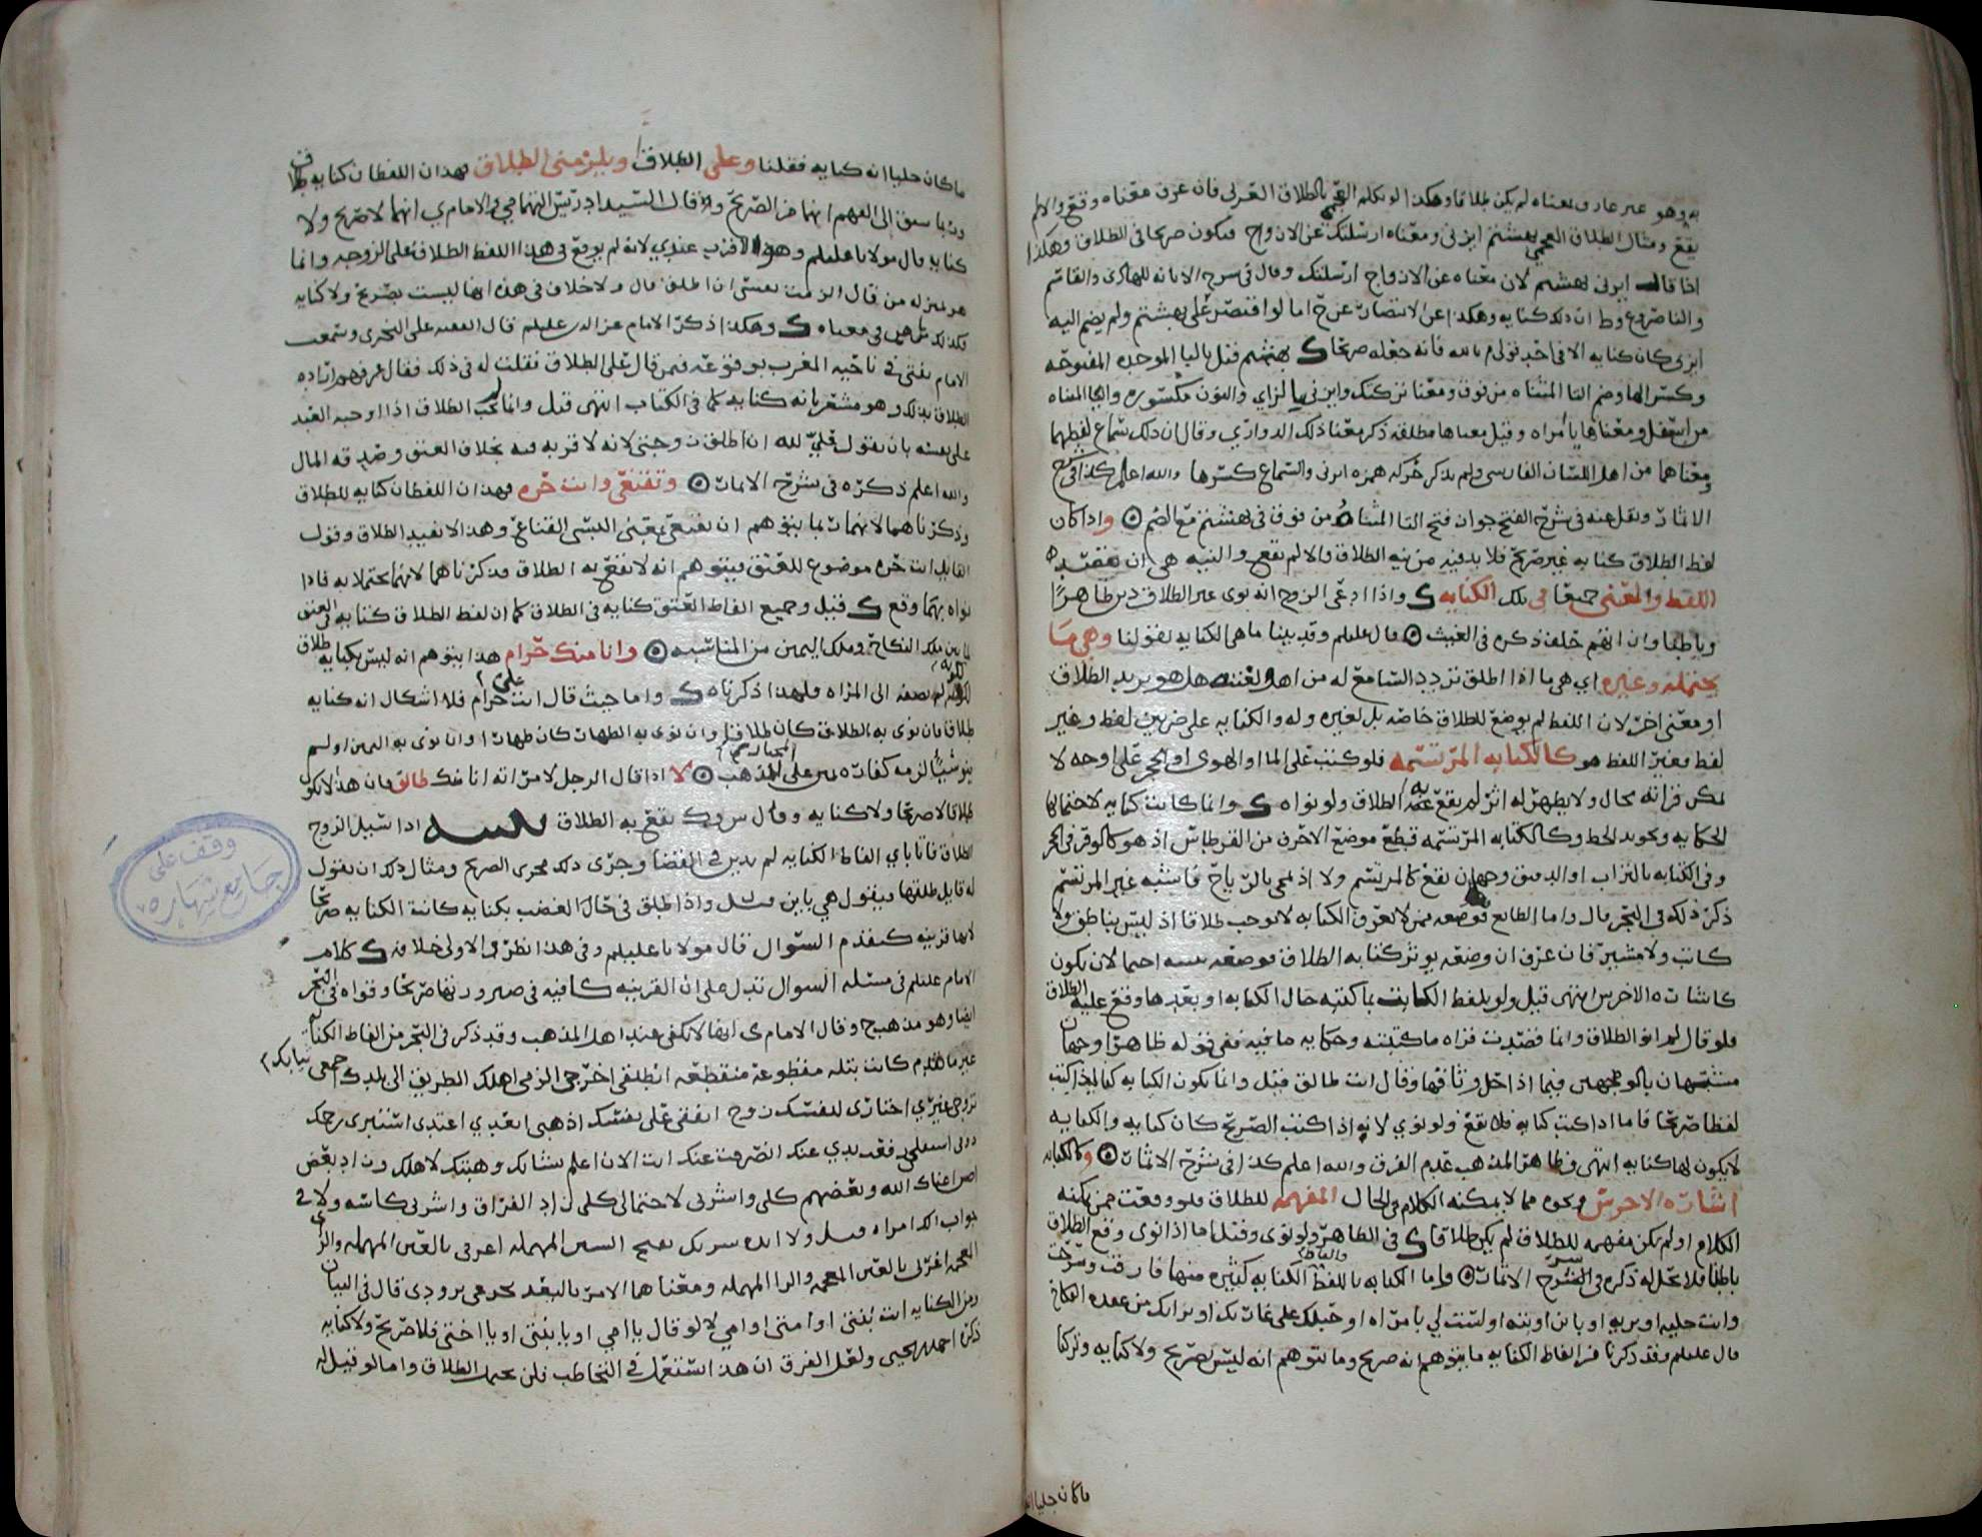 به وهو غير عارف بمعناه لم يكن طلاقا وهكذا لو تكلم العجمي بالطلاق العربي فان عرف معناه وقع والا لم
يقع ومثال الطلاق العجمي بهشتم ابزني ومعناه ارسلتك عن الازواج فيكون صريحا في الطلاق وهكذا
اذا قالت ابزني بهشتم لان معناه عن الازواج ارسلتك وقال في شرح الابانه للهادي والقاسم
والناصر وع وط ان ذلك كنايه وهكذا عن الانتصار عن ح اما لو اقتصر على بهشتم ولم يضم اليه
ابزني كان كنايه الا في احد قولي م بالله فانه جعله صريحا بهشتم قيل بالبا الموحده المفتوحه
وكسر الها وضم التا المثناه من فوق ومعنا تركتك وابزني بالزاي والنون مكسوره واليا المثناه
من اسفل ومعناها يا مراه وقيل معناها مطلقه ذكر معنا ذلك الدواري وقال ان ذلك سماع لفظهما
ومعناهما من اهل اللسان الفارسي ولم يذكر حركه همزه ابزني والسماع كسرها والله اعلم كذا في شرح
الاثمار ونقل عنه في شرح الفتح جواز فتح التا المثناه من فوق في بهشتم مع الضم واذا كان
لفظ الطلاق كنايه غير صريح فلا بد فيه من نيه الطلاق والا لم يقع والنيه هي ان يقصد
اللفظ والمعنى جميعا في تلك الكنايه واذا ادعى الزوج انه نوى غير الطلاق دين ظاهرا
وباطنا وان اتهم حلف ذكره في الغيث قال عليلم وقد بينا ماهي الكنايه بقولنا وهي ما
يحتمله وغيره اي هي ما اذا اطلق تردد السامع له من اهل لغته هل هو يريد الطلاق
او معنى اخر لان اللفظ لم يوضع للطلاق خاصه بل لغيره وله والكنايه على ضربين لفظ وغير
لفظ فغير اللفظ هو كالكتابه المرتسمه فلو كتب على الما او الهوى او الحجر على اوجه لا
يمكن قراته بحال ولا يظهر له اثر لم يقع به الطلاق ولو نواه وانما كانت كنايه لاحتمالها
الحكايه وتجويد الخط وكالكتابه المرتسمه قطع موضع الاحرف من القرطاس اذ هو كالوقر في الحجر
وفي الكتابه بالتراب او الدقيق وجهان يقع كالمرتسم ولا اذ يمحى بالرياح فاشبه غير المرتسم
ذكر ذلك في البحر قال واما الطابع فوضعه ممن لا يعرف الكتابه لا يوجب طلاقا اذ ليس بناطق ولا
كاتب ولا مشير فان عرف ان وضعه يوثر كتابه الطلاق فوضعه بنيه احتمالا ان يكون
كاشاره الاخرس انتهى قيل ولو تلفظ الكاتب بما كتبه حال الكتابه او بعدها وقع عليه الطلاق
فلو قال لم ارد الطلاق وانما قصدت قراه ما كتبته وحكايه ما فيه ففي قوله ظاهرا وجهان
مشبهان بالوجهين فيما اذا حل وثاقها وقال انت طالق قيل وانما يكون الكتابه كنايه اذا كتب
لفظا صريحا فاما اذا كتب كنايه فلا تقع ولو نوي لانه اذا كتب الصريح كان كنايه والكنايه
لا يكون لها كنايه انتهى وظاهر المذهب عدم الفرق والله اعلم كذا في شرح الاثمار وكالكتابه
اشاره الاخرس ونحوه مما لا يمكنه الكلام في الحال المفهمه للطلاق فلو وقعت ممن يمكنه
الكلام او لم تكن مفهمه للطلاق لم يكن طلاقا في الظاهر ولو نوى وقيل اما اذا نوى وقع الطلاق
باطنا فلا تحل له ذكره في الشرح الاثمار واما الكنايه باللفظ والفاظ الكنايه كثيره منها فارقت وسرحت
وانت خليه او بريه او باين او بته او لست لي بامراه او حبلك على غاربك او برائك من عقده النكاح
قال عليلم وقد ذكرنا من الفاظ الكنايه ما يتوهم انه صريح وما يتوهم انه ليس بصريح ولا كنايه وتركنا
ما كان جليا انه
ما كان جليا انه كنايه فقلنا وعلي الطلاق ويلزمني الطلاق فهذان اللفظان كنايه طلاق
وربما سبق الى الفهم انهما من الصريح وقد قال السيد ادريس التهامي والامام ي انهما لا صريح ولا
كنايه قال مولانا عليلم وهو الاقرب عندي لانه لم يوقع في هذا اللفظ الطلاق على الزوجه وانما
هو بمنزله من قال الزمت نفسي ان اطلق قال ولا خلاف في هذه انها ليست بصريح ولا كنايه
فكذلك ما هي في معناه وهكذا ذكر الامام عز الدين عليلم قال الفقيه علي النجري وسمعت
الامام يفتي في ناحيه المغرب بوقوعه فيمن قال علي الطلاق فقلت له في ذلك فقال عرفهم اراده
الطلاق بذلك وهو مشعر بانه كنايه كما في الكتاب انتهى قيل وانما لم يجب الطلاق اذا اوجبه العبد
على نفسه بان يقول علي لله ان اطلق زوجتي لانه لا قربه فيه بخلاف العتق وصدقه المال
والله اعلم ذكره في شرح الاثمار وتقنعي وانت حره فهذان اللفظان كنايه للطلاق
وذكرناهما لانهما ربما يتوهم ان تقنعي بمعنى البسي القناع وهذا لا يفيد الطلاق وقول
القايل انت حره موضوع للعتق فيتوهم انه لا يقع به الطلاق فذكرناهما لانهما يحتملانه فاذا
نواه بهما وقع قيل وجميع الفاظ العتق كنايه في الطلاق كما ان لفظ الطلاق كنايه في العتق
لما بين ملك النكاح وملك اليمين من المناسبه وانا منك حرام هذا يتوهم انه ليس بكنايه طلاق
لكونه لم يضفه الى المراه فلهذا ذكرناه واما حيث قال انت علي حرام فلا اشكال انه كنايه
طلاق فان نوى به الطلاق كان طلاقا وان نوى به الظهار كان ظهارا وان نوى به اليمين او لم
ينو شيا لزمه كفاره يمين على المذهب لا اذا قال الرجل لامراته انا منك طالق فان هذا لا يكون
طلاقا لا صريحا ولا كنايه وقال س وك يقع به الطلاق تنبيه اذا سئل الزوج
الطلاق فاتا باي الفاظ الكنايه لم يدين في القضا وجرى ذلك مجرى الصريح ومثال ذلك ان يقول
له قايل طلقها فيقول هي باين قيل واذا طلق في حال الغضب بكنايه كانت الكنايه صريحا
لانها قرينه كتقدم السوال قال مولانا عليلم وفي هذا نظر والاولى خلافه كلام
الامام عليلم في مسئله السوال تدل على ان القرينه كافيه في صيرورتها صريحا وقواه في البحر
ايضا وهو مذهب ح وقال الامام ي انها لا تكفي عند اهل المذهب وقد ذكر في البحر من الفاظ الكنايه
غير ما تقدم كانت بتله مقطوعه منقطعه انطلقي اخرجي الزمي اهلك الطريق الى بلدك اجمعي ثيابك
تزوجي غيري اختاري لنفسك زوج انفقي على نفسك اذهبي ابعدي اعتدي استبري رحمك
ذوقي استفلحي فقد بدي عنك انصرفت عنك انت الان اعلم بشانك وهبتك لاهلك وزاد بعض
اص اغناك الله وبعضهم كلي واشربي لاحتمالي كلي زاد الفراق واشربي كاسه ولا في
جواب الك امراه قيل ولا انده سربك بفتح السين المهمله اعزبي بالعين المهمله والزاي
المعجمه اغربي بالغين المعجمه والرا المهمله ومعناهما الامر بالبعد تجرعي برودي قال في البيان
ومن الكنايه انت بنتي او امتي او امي لا لو قال يا امي او يا بنتي او يا اختي فلا صريح ولا كنايه
ذكره احمد بن يحيى ولعل الفرق ان هذا استعمل في التخاطب فلن يحتمل الطلاق واما لو قيل له
وقف على
جامع شهاره